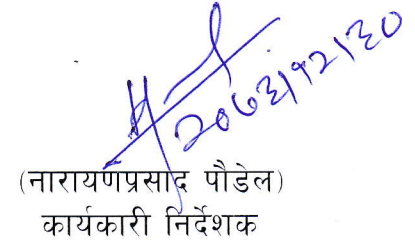 २०७३।१२।३०
(नारायणप्रसाद पौडेल)
कार्यकारी निर्देशक